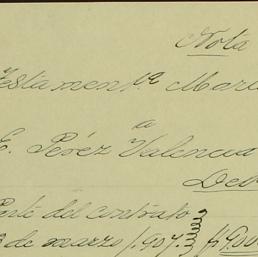 Nota
Testament.ª Marí
a
E. Pérez Valencia
De
Parte del contrato
de marzo /.907. $ 900